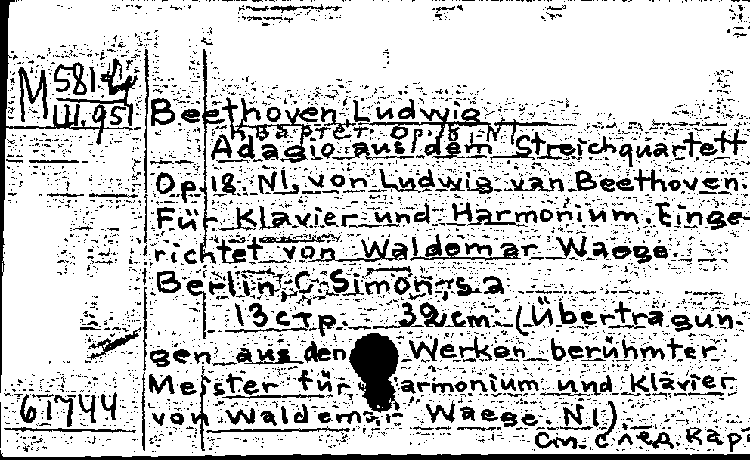 M 581-4
III.951
Beethoven, Ludwig
Квартет. Op. 18, N1
Adagio aus dem Streichquartett
Op.18. N1, von Ludwig van Beethoven.
Für Klavier und Harmonium. Einge-
richtet von Waldemar Waege.
Berlin, C. Simon, s.a
13 стр. 32 cm. (Übertragun-
gen aus den Werken berühmter
Meister für armonium und Klavier
von Waldemar Waege. N1).
61744
См. след. кар